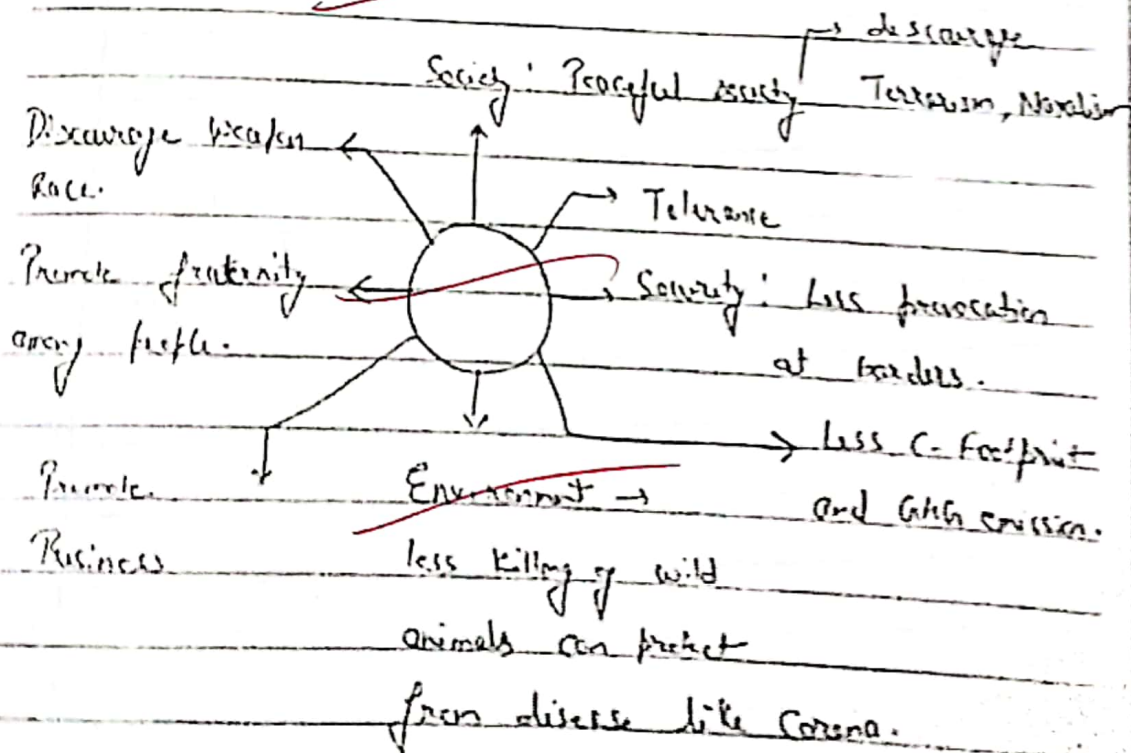 discourage
Society: Peaceful society Terrorism, Naxalism
Discourage weapon
Race.
Tolerance
Promote fraternity
among people.
Security: Less provocation
at borders.
Less C-Footprint
and GHG emission.
Promote
Business
Environment →
less killing of wild
animals can protect
from disease like Corona.